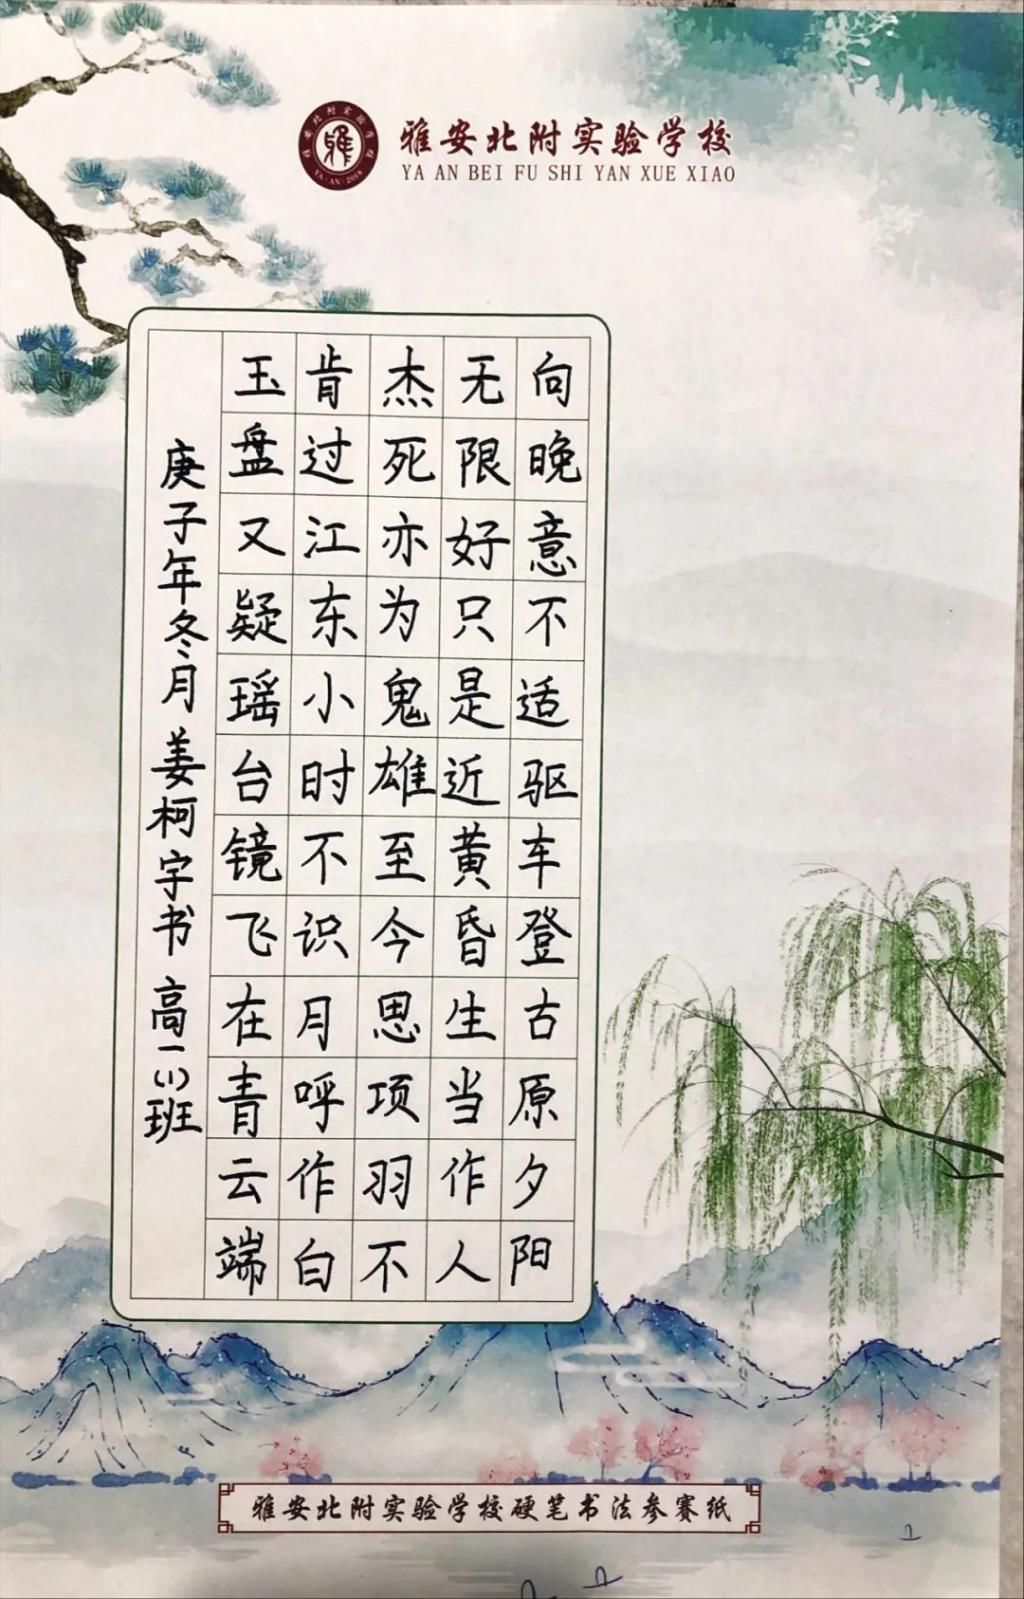 雅安北附实验学校
YA AN BEI FU SHI YAN XUE XIAO
向晚意不适驱车登古原夕阳
无限好只是近黄昏生当作人
杰死亦为鬼雄至今思项羽不
肯过江东小时不识月呼作白
玉盘又疑瑶台镜飞在青云端
庚子年冬月姜柯宇书 高一(1)班
雅安北附实验学校硬笔书法参赛纸